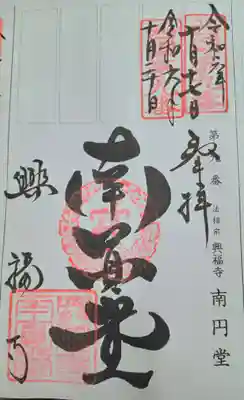 令和六年
十月十七日
令和六年
十月二十日
奉拝
第 九 番 法相宗 興福寺 南円堂
南円堂
興福寺